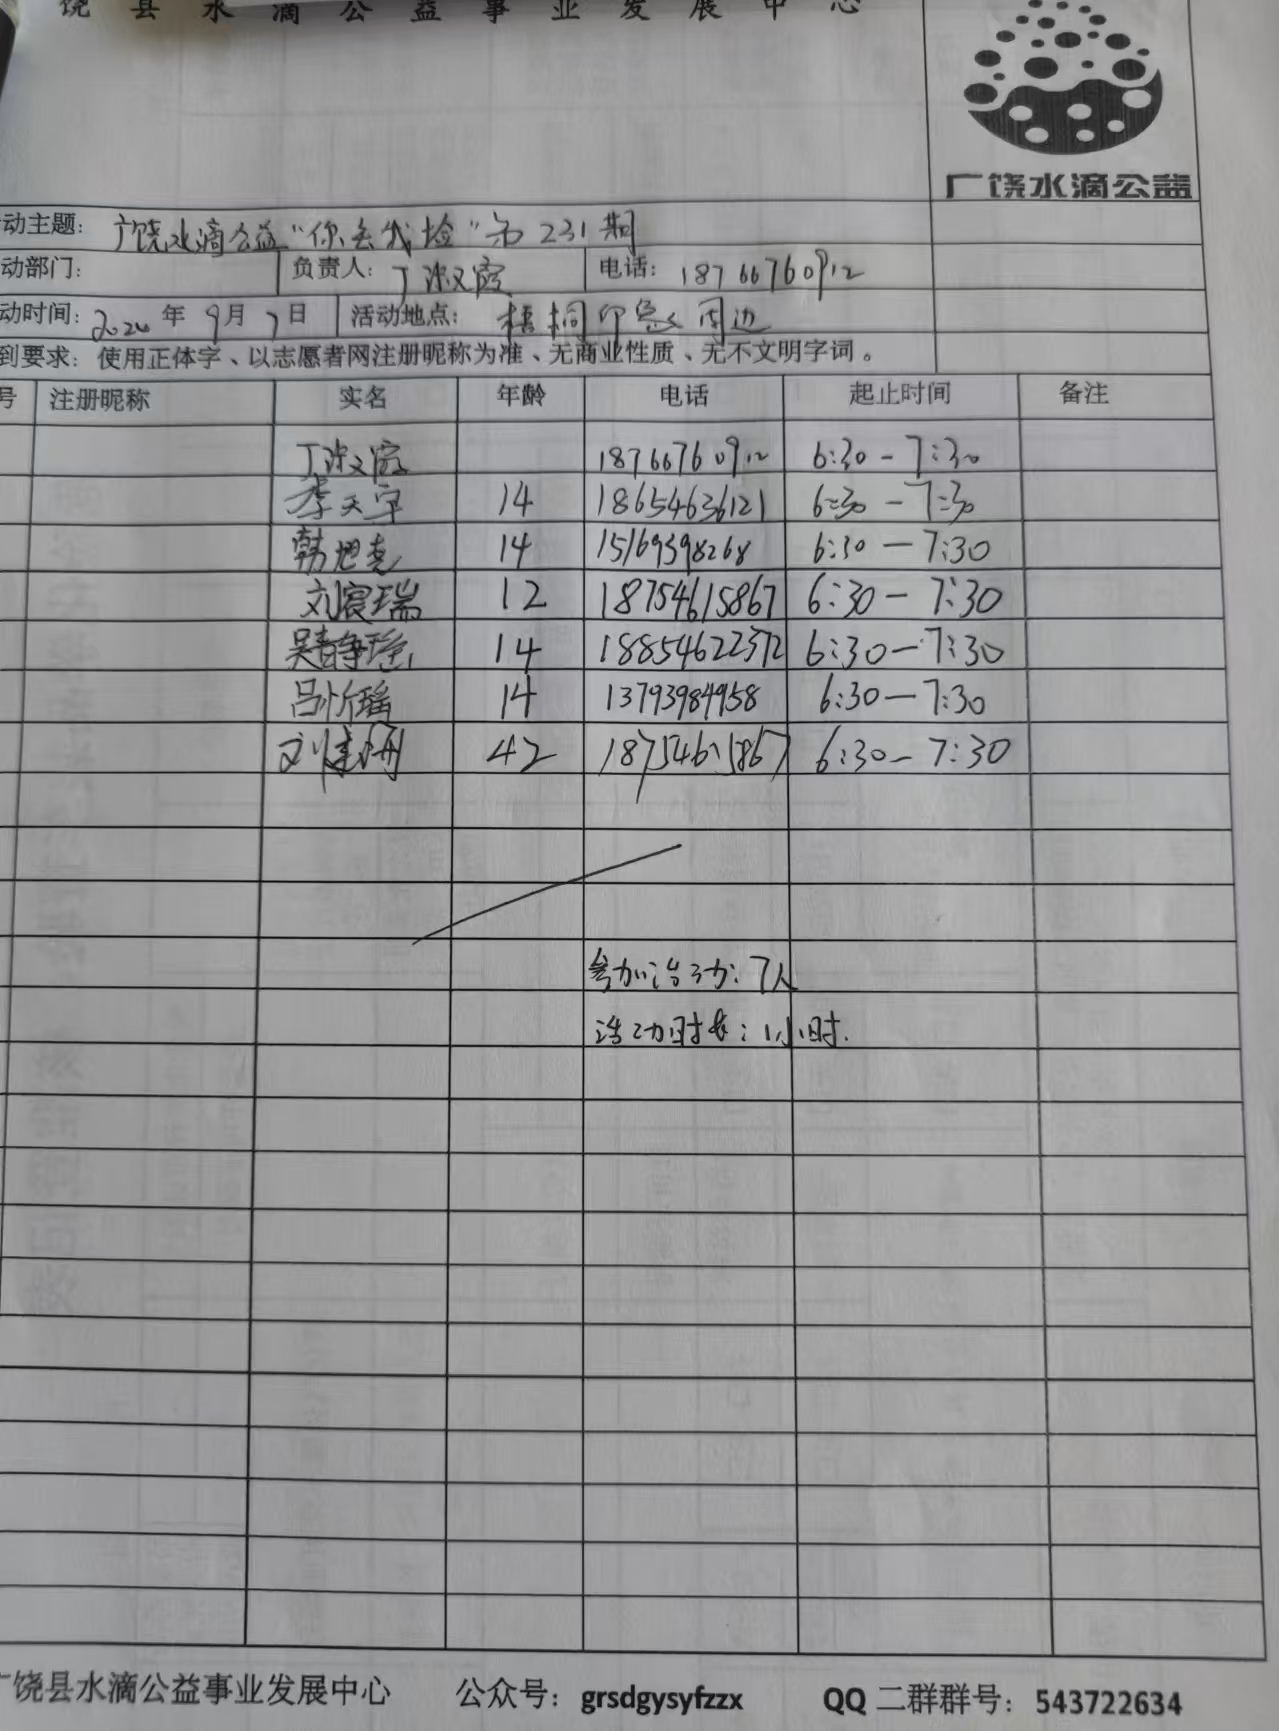 饶县水滴公益事业发展中心
广饶水滴公益
动主题: 广饶水滴公益"你丢我捡"第231期
动部门: 负责人: 丁淑霞 电话: 18766760912
动时间: 2024年9月7日 活动地点: 梧桐印象周边
到要求: 使用正体字、以志愿者网注册昵称为准、无商业性质、无不文明字词。
号 注册昵称 实名 年龄 电话 起止时间 备注
丁淑霞 18766760912 6:30-7:30
李天宇 14 18654636121 6:30-7:30
韩旭尧 14 15169398268 6:30-7:30
刘宸瑞 12 18754615867 6:30-7:30
吴静瑶 14 18854622372 6:30-7:30
吕忻瑶 14 13793984958 6:30-7:30
刘建 42 18754615867 6:30-7:30
参加活动: 7人
活动时长: 1小时.
广饶县水滴公益事业发展中心 公众号: grsdgysyfzzx QQ 二群群号: 543722634